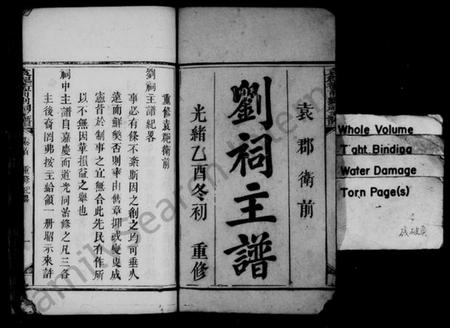 袁郡衛前
劉祠主譜
光緒乙酉冬初 重修
重修袁郡衛前
劉祠主譜紀畧
事必有條不紊斯因之創之均可垂久
遠而鮮獘否則率由舊章抑或變更成
憲昔於制事之宜無合此先民有作所
以不無因革損益之舉也
祠中主譜自嘉慶而道光同治修之凡三各
主後裔罔弗按主給領一册昭示來許
Whole Volume
Tight Binding
Water Damage
Torn Page(s)